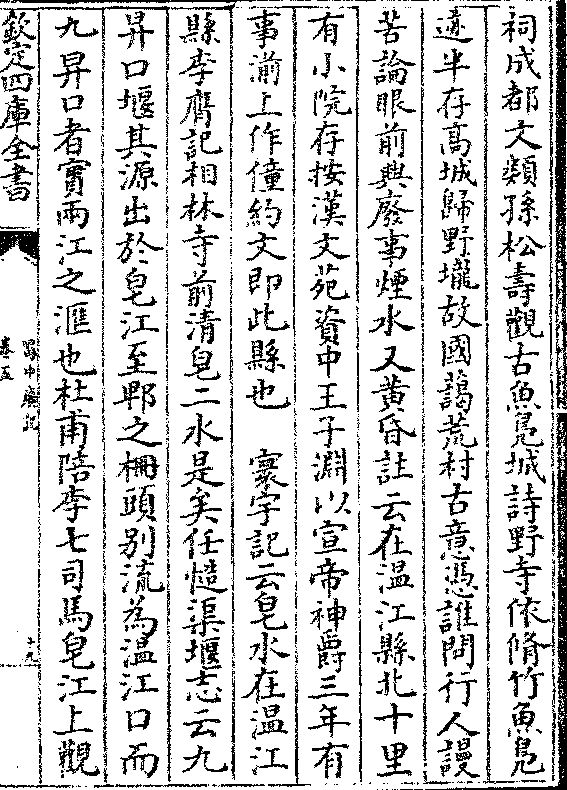 祠成都文類孫松壽觀古魚鳧城詩野寺依脩竹魚鳧
遺半存髙城歸野壠故國藹荒村古意慿誰問行人謾
苦論眼前興廢事煙水又黄昏註云在温江縣北十里
有小院存按漢文苑資中王子淵以宣帝神爵三年有
事湔上作僮約文即此縣也　寰宇記云皂水在温江
縣李膺記相林寺前清皂二水是矣任慥渠堰志云九
昇口堰其源出於皂江至郫之柵頭别流為温江口而
九昇口者實兩江之滙也杜甫陪李七司馬皂江上觀
欽定四庫全書
蜀中廣記
卷五
十九